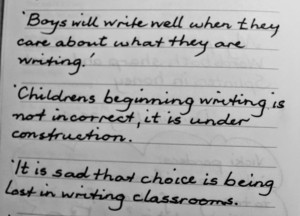 'Boys will write well when they
care about what they are
writing.
'Childrens beginning writing is
not incorrect, it is under
construction.
'It is sad that choice is being
lost in writing classrooms.